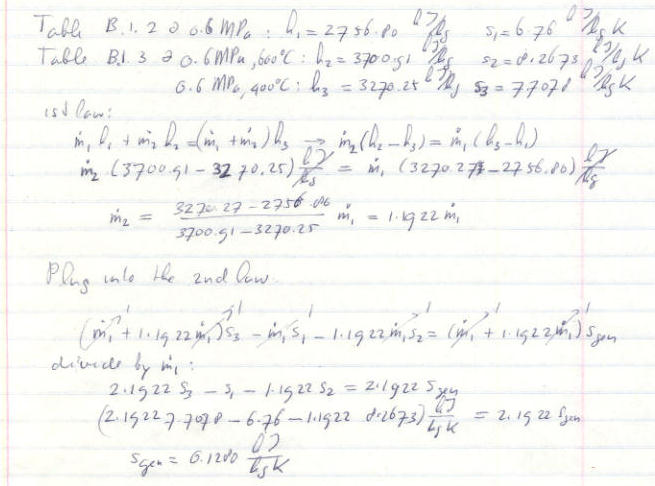 Table B.1.2 @ 0.6 MPa : h₁ = 2756.80 kJ/kg s₁ = 6.76 kJ/kg K
Table B.1.3 @ 0.6 MPa, 600°C : h₂ = 3700.91 kJ/kg s₂ = 8.2673 kJ/kg K
0.6 MPa, 400°C : h₃ = 3270.25 kJ/kg s₃ = 7.7078 kJ/kg K
1st law:
ṁ₁ h₁ + ṁ₂ h₂ = (ṁ₁ + ṁ₂) h₃ → ṁ₂ (h₂ – h₃) = ṁ₁ (h₃ – h₁)
ṁ₂ (3700.91 – 3270.25) kJ/kg = ṁ₁ (3270.27 – 2756.80) kJ/kg
ṁ₂ = (3270.27 – 2756.80)/(3700.91 – 3270.25) ṁ₁ = 1.1922 ṁ₁
Plug into the 2nd law.
(ṁ₁ + 1.1922 ṁ₁) s₃ – ṁ₁ s₁ – 1.1922 ṁ₁ s₂ = (ṁ₁ + 1.1922 ṁ₁) s gen
divide by ṁ₁ :
2.1922 s₃ – s₁ – 1.1922 s₂ = 2.1922 s gen
(2.1922 7.7078 – 6.76 – 1.1922 8.2673) kJ/kg K = 2.1922 s gen
s gen = 0.1280 kJ/kg K